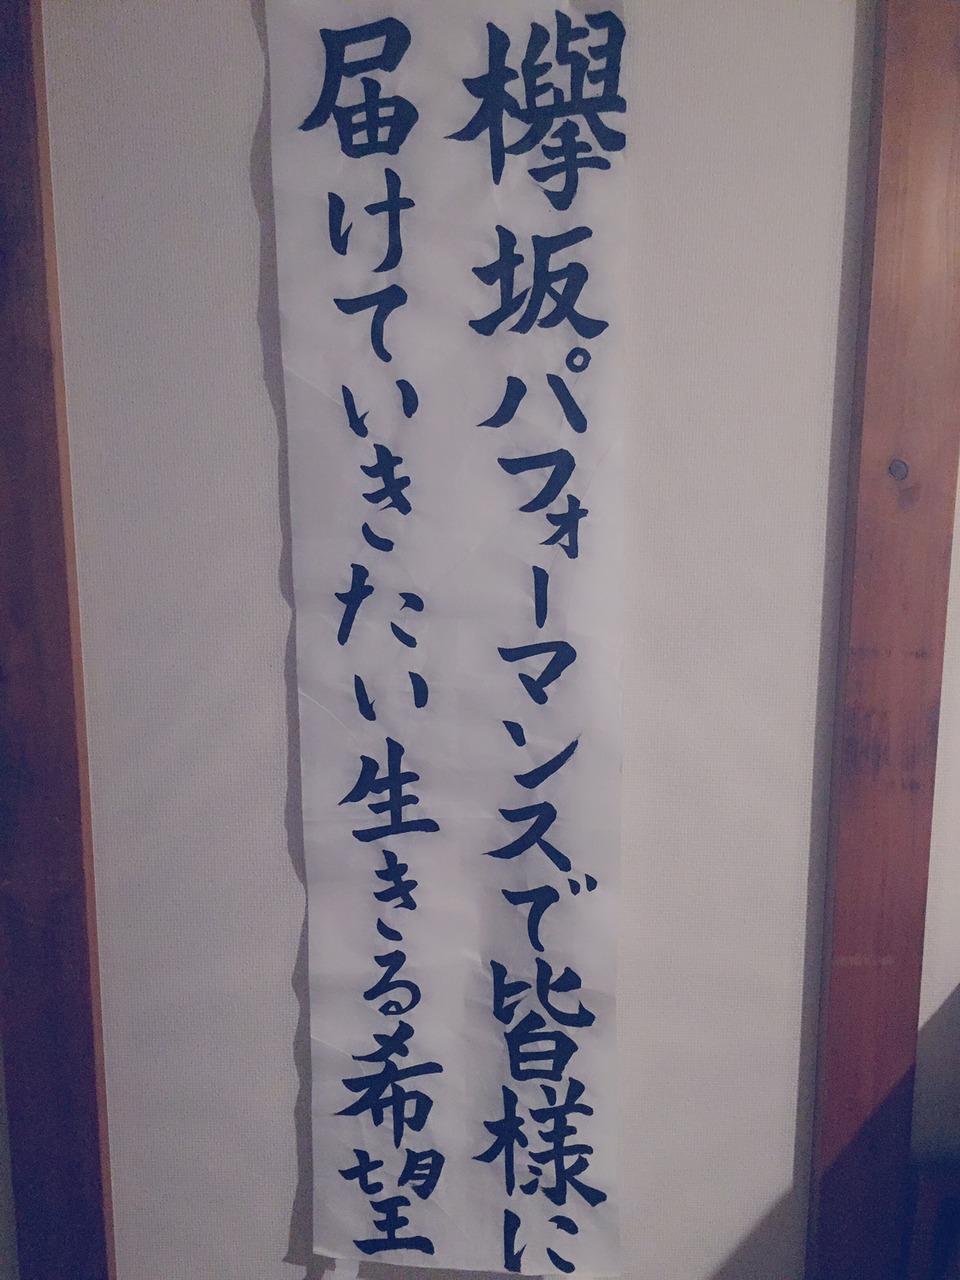 欅坂パフォーマンスで皆様に
届けていきたい生きる希望